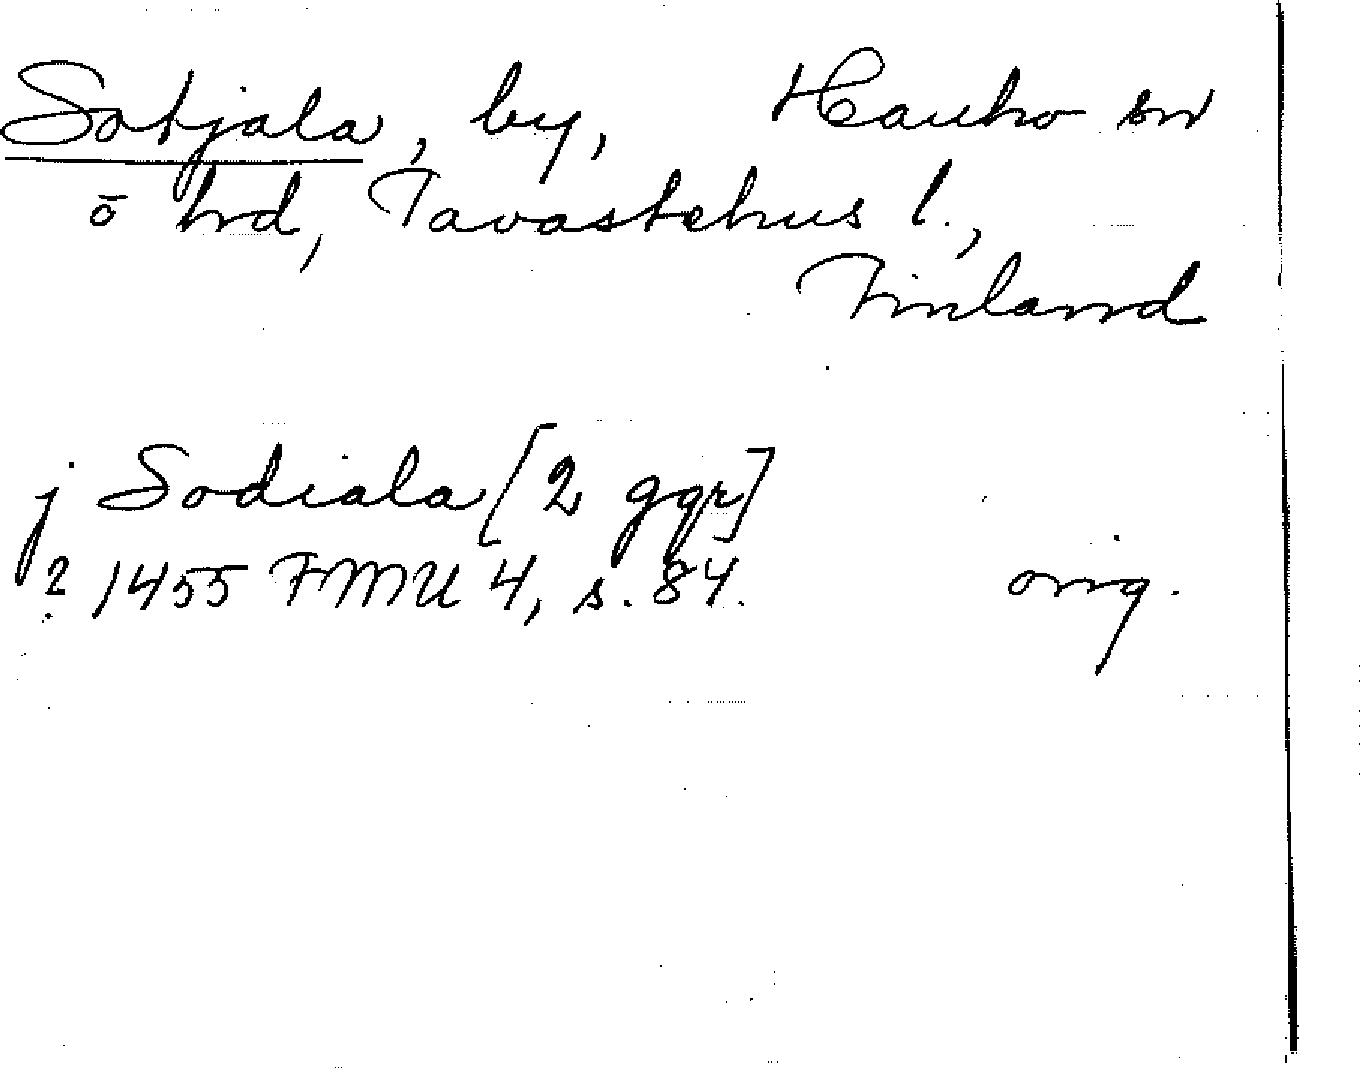 Sotjala, by, Hauho sn
o hd, Tavastehus l.,
Finland
j Sodiala [2 ggr]
? 1455 FMU 4, s. 84. orig.